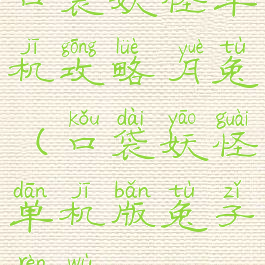 口袋妖怪单
jī gōng lüè yuè tù
机攻略 月兔
kǒu dài yāo guài
（口袋妖怪
dān jī bǎn tù zǐ
单机版兔子
rèn wù